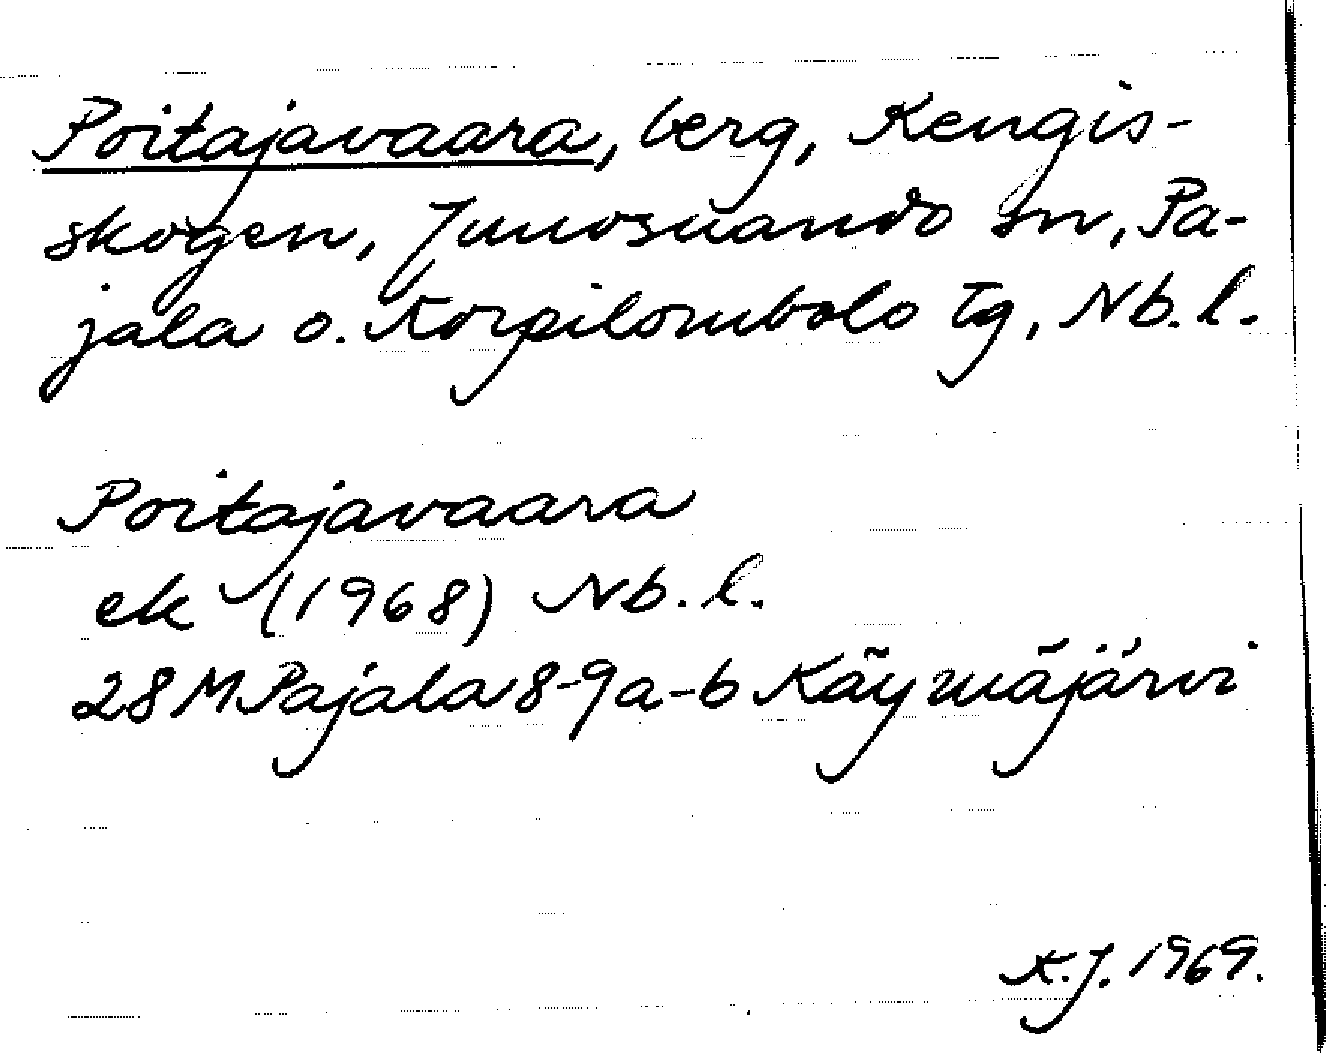 Poitajavaara, berg, Kengis-
skogen, Junosuando sn, Pa-
jala o. Korpilombolo tg, Nb. l.
Poitajavaara
ek (1968) Nb. l.
28 M Pajala 8-9a-b Käymäjärvi
K.J. 1969.